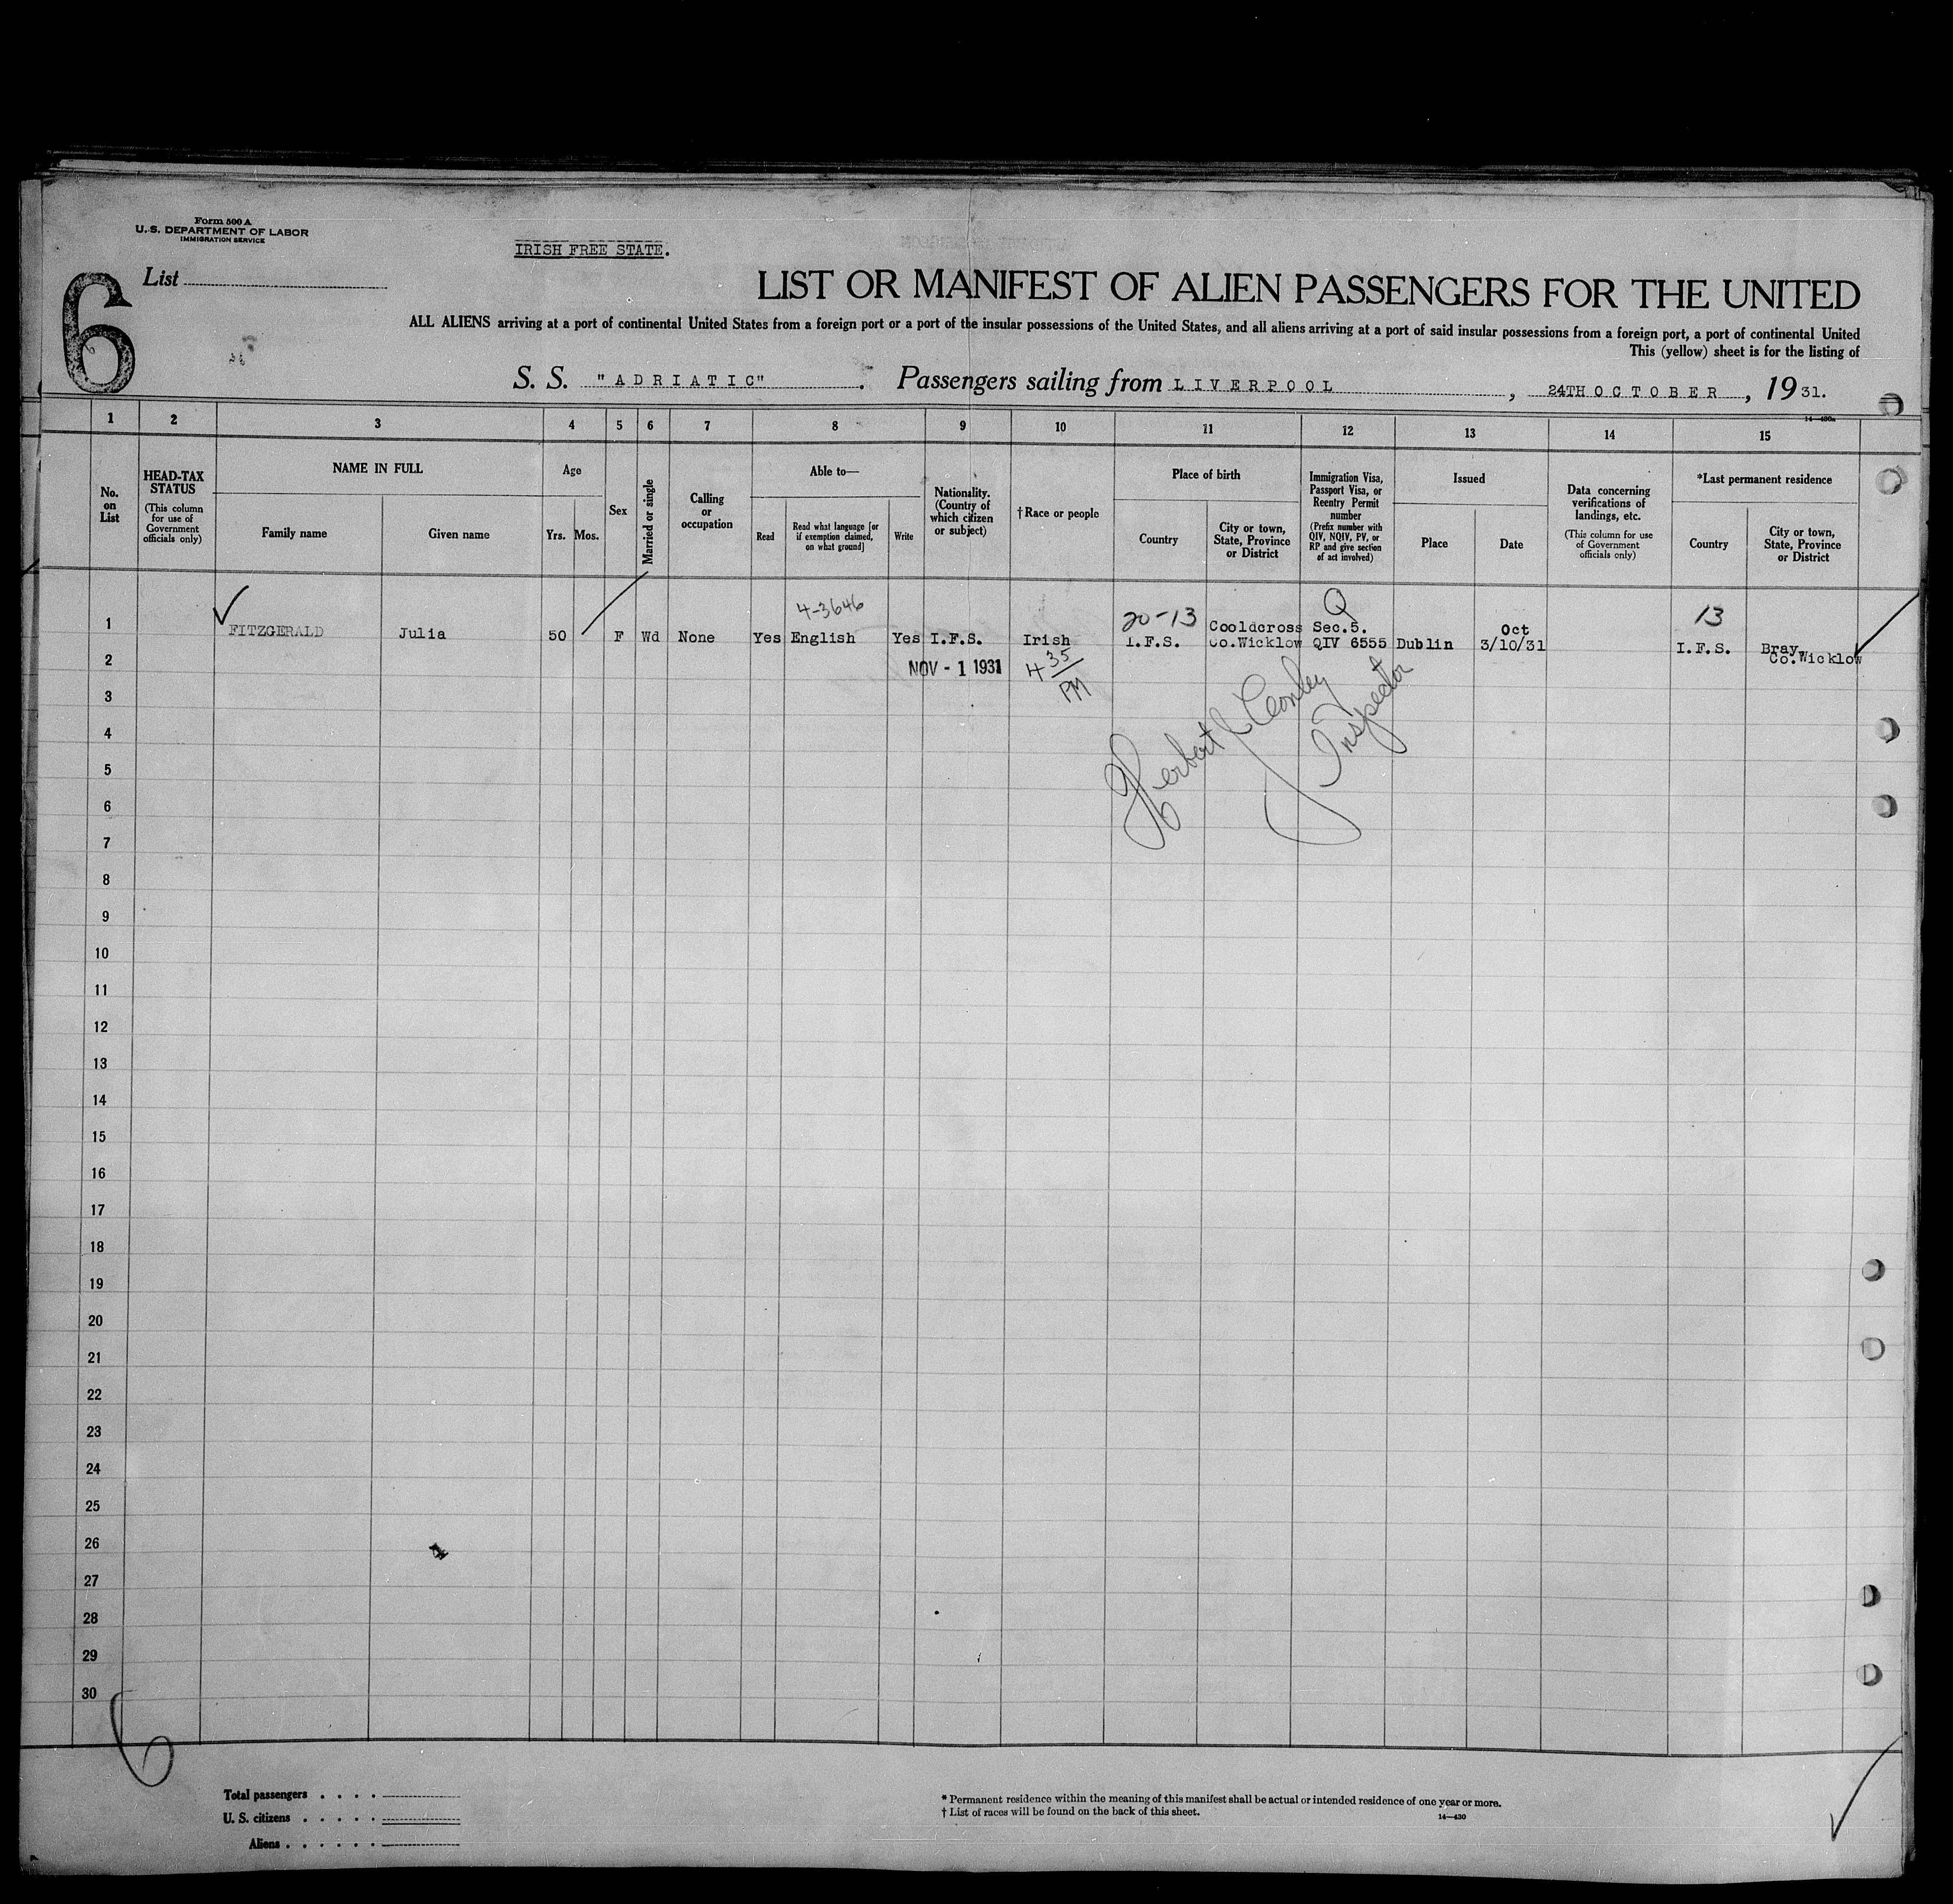 Form 500 A
U.S. DEPARTMENT OF LABOR
IMMIGRATION SERVICE
IRISH FREE STATE.
6
List
LIST OR MANIFEST OF ALIEN PASSENGERS FOR THE UNITED
ALL ALIENS arriving at a port of continental United States from a foreign port or a port of the insular possessions of the United States, and all aliens arriving at a port of said insular possessions from a foreign port, a port of continental United
This (yellow) sheet is for the listing of
S. S. "ADRIATIC". Passengers sailing from LIVERPOOL, 24TH OCTOBER, 1931.
14—430a
1 2 3 4 5 6 7 8 9 10 11 12 13 14 15
No. on List
HEAD-TAX STATUS
(This column for use of Government officials only)
NAME IN FULL
Family name
Given name
Age
Yrs. Mos.
Sex
Married or single
Calling or occupation
Able to—
Read
Read what language [or if exemption claimed, on what ground]
Write
Nationality. (Country of which citizen or subject)
†Race or people
Place of birth
Country
City or town, State, Province or District
Immigration Visa, Passport Visa, or Reentry Permit number
(Prefix number with QIV, NQIV, PV, or RP and give section of act involved)
Issued
Place
Date
Data concerning verifications of landings, etc.
(This column for use of Government officials only)
*Last permanent residence
Country
City or town, State, Province or District
4-3646 20-13 Q 13
1 FITZGERALD Julia 50 F Wd None Yes English Yes I.F.S. Irish I.F.S. Cooldcross Co.Wicklow Sec.5. QIV 6555 Dublin Oct 3/10/31 I.F.S. Bray, Co.Wicklow
2 NOV - 1 1931 4 35 PM
3
Herbert Conley
Inspector
4
5
6
7
8
9
10
11
12
13
14
15
16
17
18
19
20
21
22
23
24
25
26
27
28
29
30
6
Total passengers
U. S. citizens
Aliens
* Permanent residence within the meaning of this manifest shall be actual or intended residence of one year or more.
† List of races will be found on the back of this sheet.
14—430